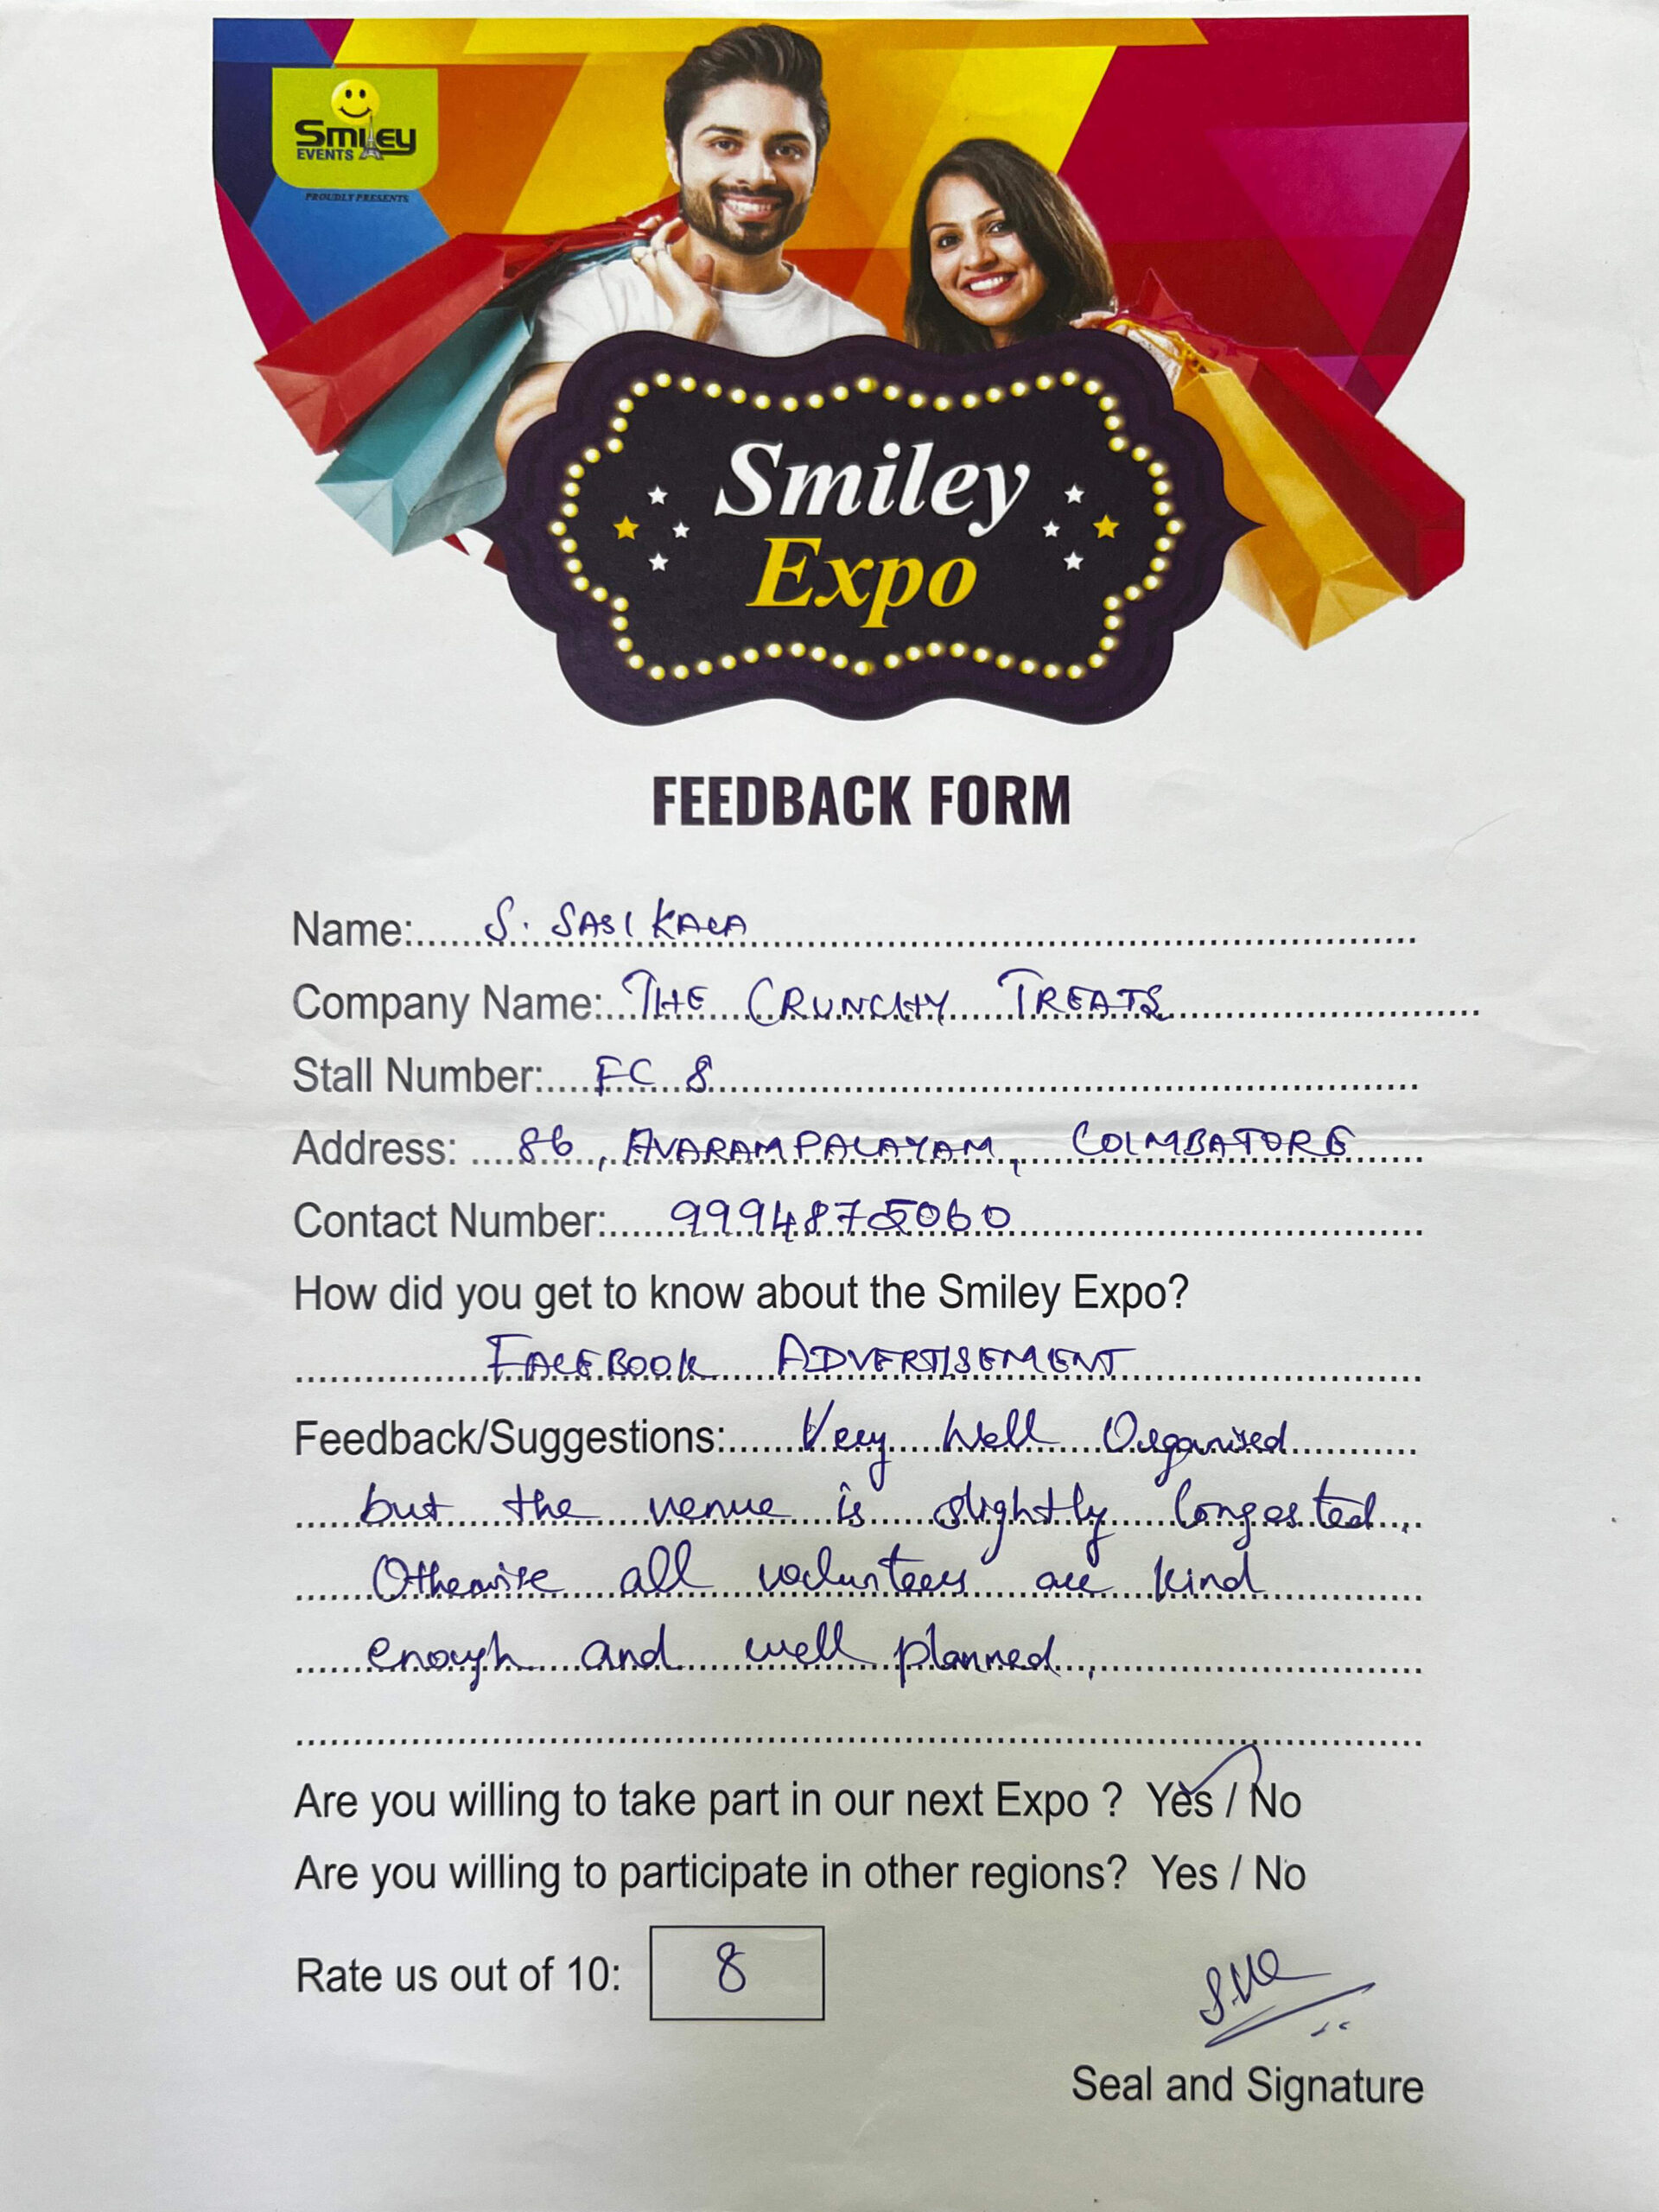 Smiley
EVENTS
PROUDLY PRESENTS
Smiley
Expo
FEEDBACK FORM
Name: S. SASIKALA
Company Name: THE CRUNCHY TREATS
Stall Number: FC 8
Address: 86, AVARAMPALAYAM, COIMBATORE
Contact Number: 9994875060
How did you get to know about the Smiley Expo?
FACEBOOK ADVERTISEMENT
Feedback/Suggestions: Very Well Organised
but the venue is slightly Congested.
Otherwise all volunteers are kind
enough and well planned.
Are you willing to take part in our next Expo ? Yes / No
Are you willing to participate in other regions? Yes / No
Rate us out of 10: 8
Seal and Signature